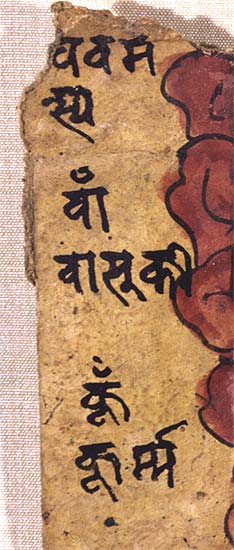 ववम
स्य
वाँ
वासूकी
कूँ
कूर्म्म